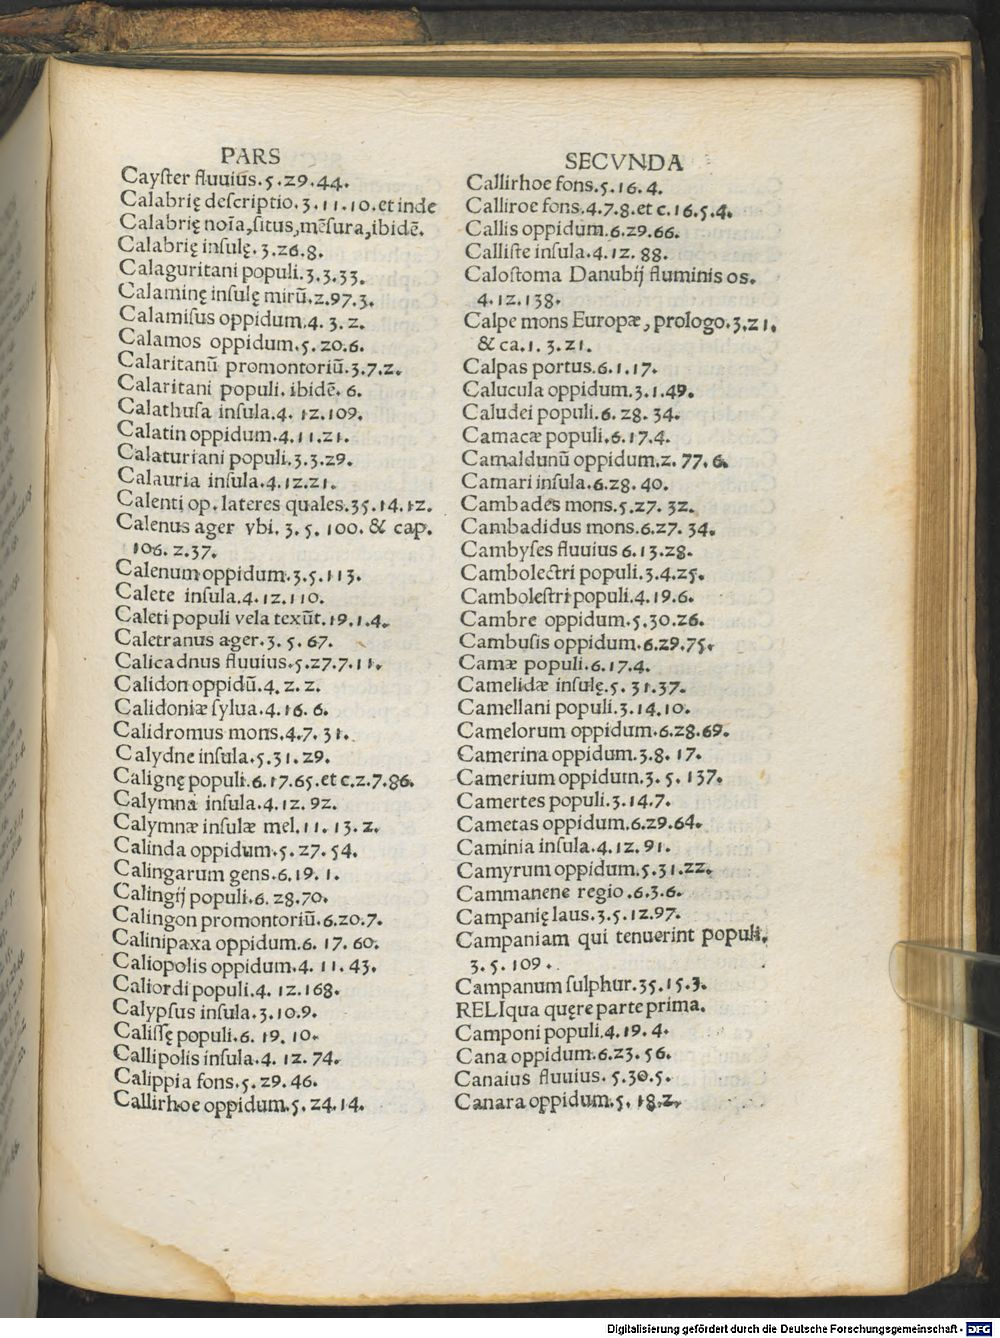 PARS
Cayſter fluuius.5.29.44.
Calabrię deſcriptio.3.11.10.et inde
Calabrię noīa,ſitus,mēſura,ibidē.
Calabrię inſulę.3.26.8.
Calaguritani populi.3.3.33.
Calaminę inſulę mirū.2.97.3.
Calamiſus oppidum.4.3.2.
Calamos oppidum.5.20.6.
Calaritanū promontoriū.3.7.2.
Calaritani populi.ibidē.6.
Calathuſa inſula.4.12.109.
Calatin oppidum.4.11.21.
Calaturiani populi.3.3.29.
Calauria inſula.4.12.21.
Calenti op.lateres quales.35.14.12.
Calenus ager vbi.3.5.100.& cap.
106.2.37.
Calenum oppidum.3.5.113.
Calete inſula.4.12.110.
Caleti populi vela texūt.19.1.4.
Caletranus ager.3.5.67.
Calicadnus fluuius.5.27.7.11.
Calidon oppidū.4.2.2.
Calidoniæ ſylua.4.16.6.
Calidromus mons.4.7.31.
Calydne inſula.5.31.29.
Calignę populi.6.17.65.et c.2.7.86.
Calymna inſula.4.12.92.
Calymnæ inſulæ mel.11.13.2.
Calinda oppidum.5.27.54.
Calingarum gens.6.19.1.
Calingij populi.6.28.70.
Calingon promontoriū.6.20.7.
Calinipaxa oppidum.6.17.60.
Caliopolis oppidum.4.11.43.
Caliordi populi.4.12.168.
Calypſus inſula.3.10.9.
Caliſſę populi.6.19.10.
Callipolis inſula.4.12.74.
Calippia fons.5.29.46.
Callirhoe oppidum.5.24.14.
SECVNDA
Callirhoe fons.5.16.4.
Calliroe fons.4.7.8.et c.16.5.4.
Callis oppidum.6.29.66.
Calliſte inſula.4.12.88.
Caloſtoma Danubij fluminis os.
4.12.138.
Calpe mons Europæ,prologo.3.21.
& ca.1.3.21.
Calpas portus.6.1.17.
Calucula oppidum.3.1.49.
Caludei populi.6.28.34.
Camacæ populi.6.17.4.
Camaldunū oppidum.2.77.6.
Camari inſula.6.28.40.
Cambades mons.5.27.32.
Cambadidus mons.6.27.34.
Cambyſes fluuius 6.13.28.
Cambolectri populi.3.4.25.
Camboleſtri populi.4.19.6.
Cambre oppidum.5.30.26.
Cambuſis oppidum.6.29.75.
Camæ populi.6.17.4.
Camelidæ inſulę.5.31.37.
Camellani populi.3.14.10.
Camelorum oppidum.6.28.69.
Camerina oppidum.3.8.17.
Camerium oppidum.3.5.137.
Camertes populi.3.14.7.
Cametas oppidum.6.29.64.
Caminia inſula.4.12.91.
Camyrum oppidum.5.31.22.
Cammanene regio.6.3.6.
Campanię laus.3.5.12.97.
Campaniam qui tenuerint populi.
3.5.109.
Campanum ſulphur.35.15.3.
RELIqua quęre parte prima.
Camponi populi.4.19.4.
Cana oppidum.6.23.56.
Canaius fluuius.5.30.5.
Canara oppidum.5.18.2.
Digitalisierung gefördert durch die Deutsche Forschungsgemeinschaft - DFG